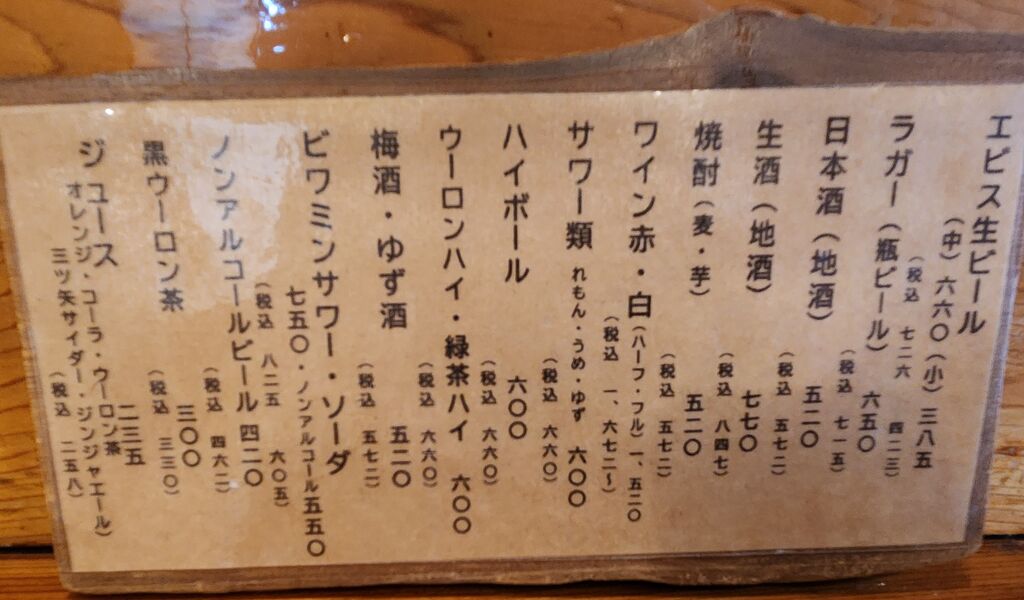 エビス生ビール
(中) 六六〇 (小) 三八五
(税込 七二六 四二三)
ラガー (瓶ビール) 六五〇
(税込 七一五)
日本酒 (地酒) 五二〇
(税込 五七二)
生酒 (地酒) 七七〇
(税込 八四七)
焼酎 (麦・芋) 五二〇
(税込 五七二)
ワイン赤・白 (ハーフ・フル) 一、五二〇
(税込 一、六七二〜)
サワー類 れもん・うめ・ゆず 六〇〇
(税込 六六〇)
ハイボール 六〇〇
(税込 六六〇)
ウーロンハイ・緑茶ハイ 六〇〇
(税込 六六〇)
梅酒・ゆず酒 五二〇
(税込 五七二)
ビワミンサワー・ソーダ
七五〇・ノンアルコール五五〇
(税込 八二五 六〇五)
ノンアルコールビール 四二〇
(税込 四六二)
黒ウーロン茶 三〇〇
(税込 三三〇)
ジュース 二三五
オレンジ・コーラ・ウーロン茶
三ツ矢サイダー・ジンジャエール)
(税込 二五八)